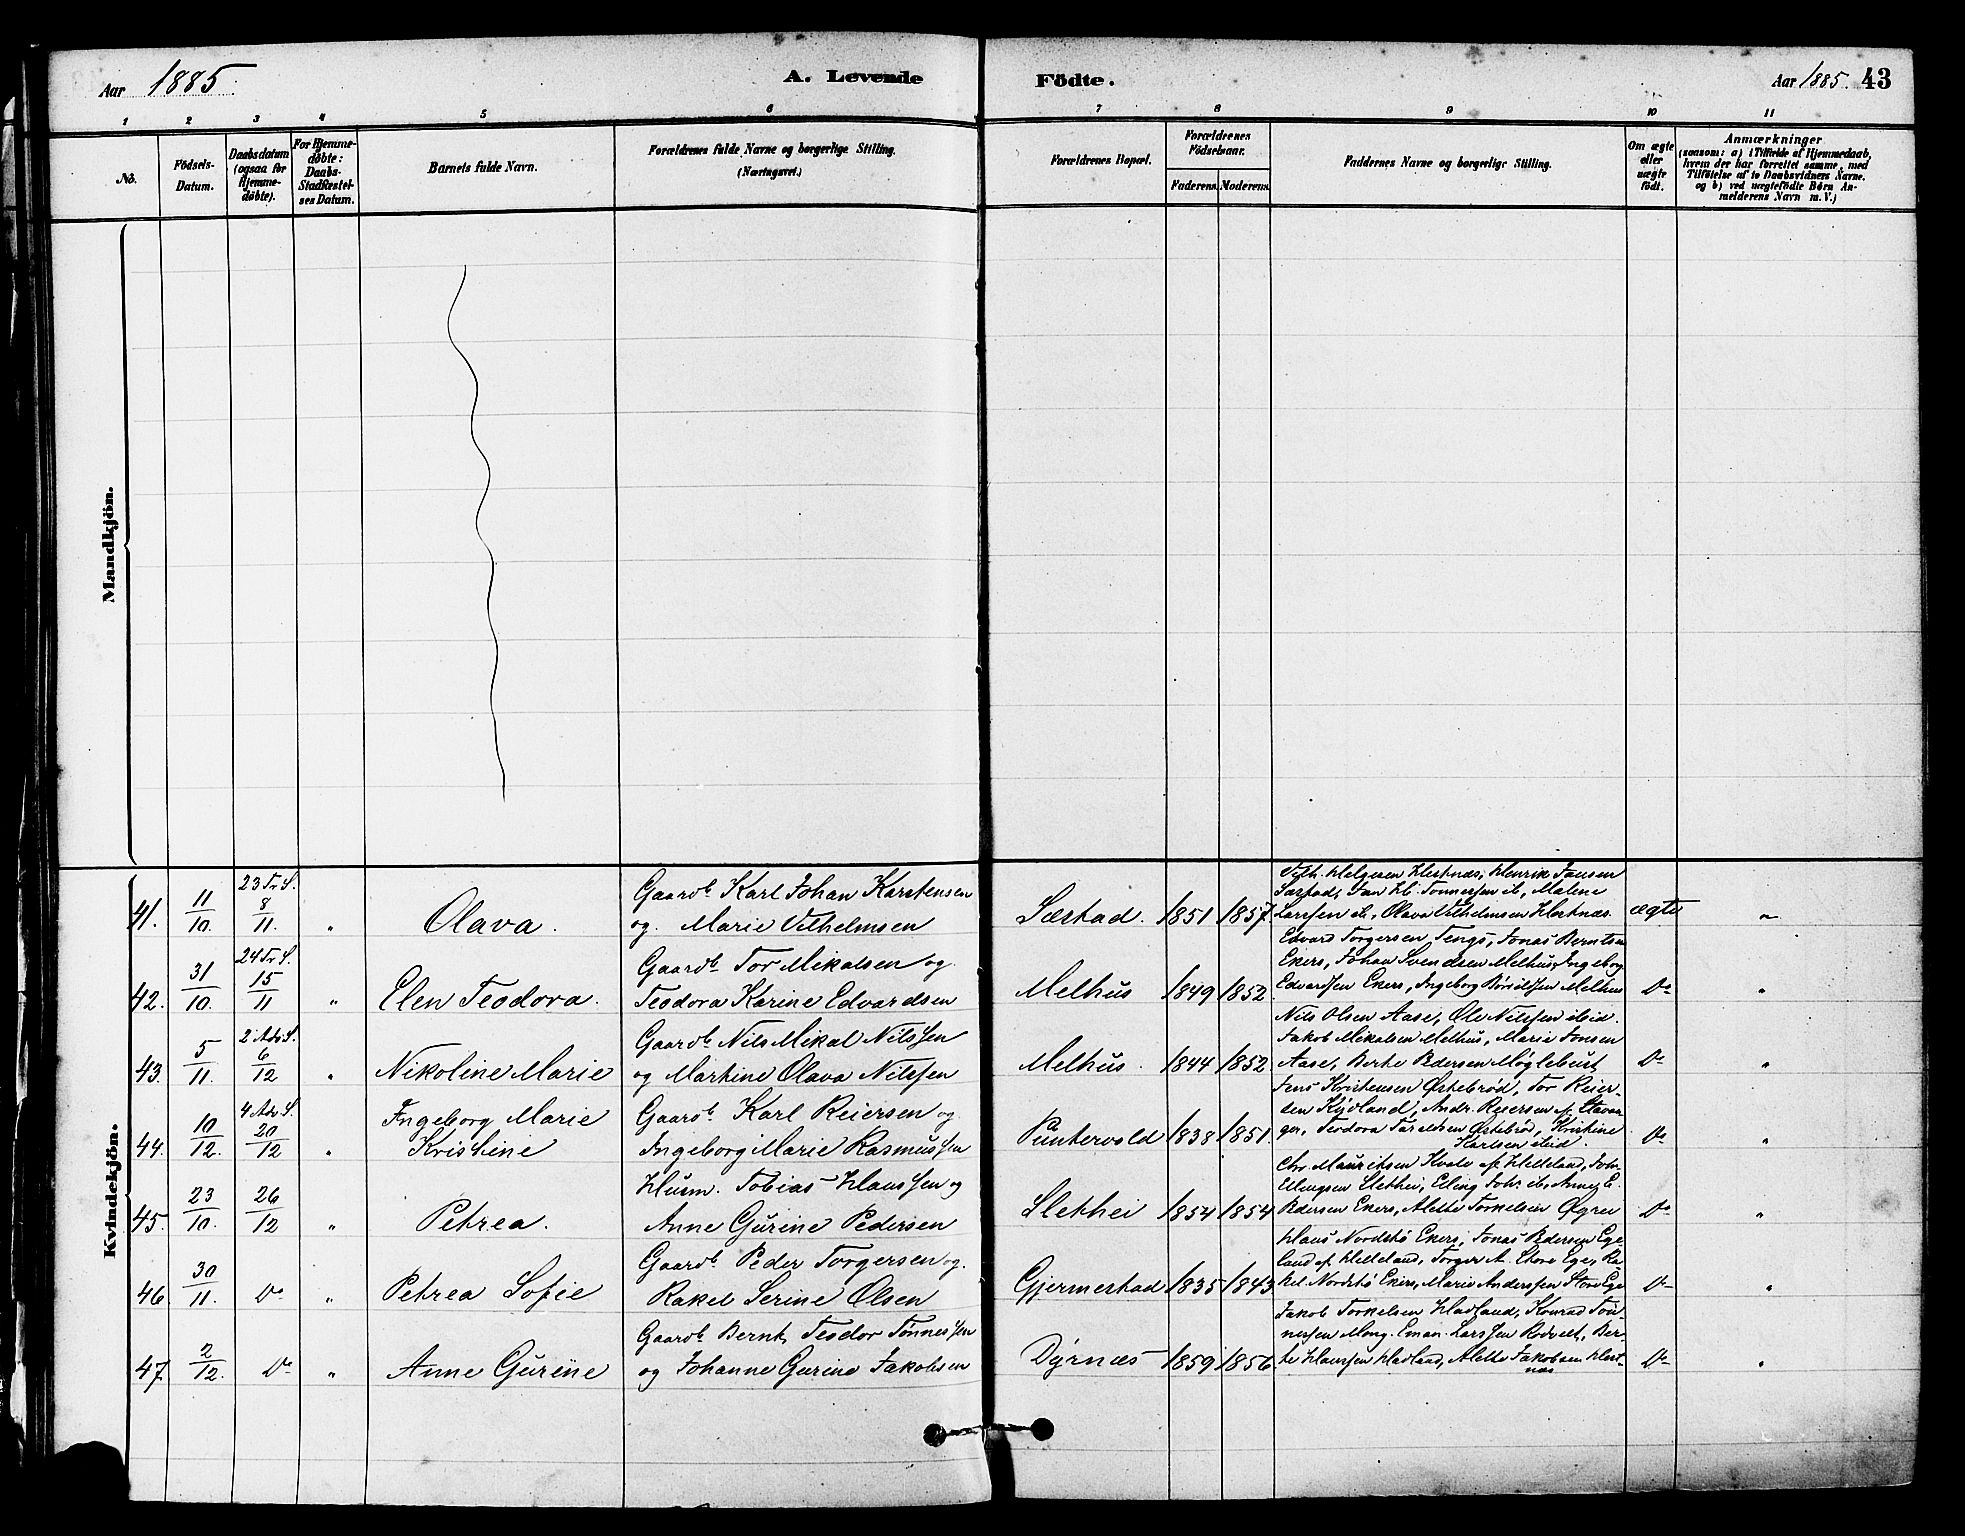 Aar 1885.
A. Levende
Födte.
Aar 1885. 43
1 2 3 4 5 6 7 8 9 10 11
No.
Födsels-
Datum.
Daabsdatum
(ogsaa for
Hjemme-
døbte).
For Hjemme-
døbte:
Daabs-
Stadfæstel-
ses Datum.
Barnets fulde Navn.
Forældrenes fulde Navne og borgerlige Stilling.
(Næringsvei.)
Forældrenes Bopæl.
Forældrenes
Födselsaar.
Faderens. Moderens.
Faddernes Navne og borgerlige Stilling.
Om ægte
eller
uægte
födt.
Anmærkninger
(saasom: a) i Tilfælde af Hjemmedaab,
hvem der har forrettet samme, med
Tilföielse af to Daabsvidners Navne.
og b) ved uægtefödte Börn An-
melderens Navn m.V.)
Mandkjön.
Kvindekjön.
41. 11/10. 23 Tr. S. 8/11. " Olava.
Gaardb. Karl Johan Karstensen
og Marie Vilhelmsen
Sæstad. 1851 1857.
Vilh. Helgesen Hestnæs, Henrik Jansen
Sæstad, Jan H. Tonnessen ib, Malene
Larssen ib, Olava Vilhelmsen Hestnæs.
ægte "
42. 31/10. 24 Tr. S. 15/11 " Elen Teodora.
Gaardb. Tor Mikalsen og
Teodora Karine Edvardsen
Melhus 1849 1852
Edvard Torgersen Tengs, Jonas Berntsen
Ekers, Johan Svendsen Melhus, Ingeborg
Edvardsen Ekers, Ingeborg Melhus
Do "
43. 5/11. 2 Adv. S. 6/12 " Nikoline Marie
Gaardb. Nils Mikal Nilssen
og Martine Olava Nilssen
Melhus. 1844 1852
Nils Olsen Aase, Ole Nilssen ibid.
Jakob Mikalsen Melhus, Marie Jonsen
Aase, Berte Pedersen Møglebust
Do "
44. 10/12. 4 Adv. S. 20/12 " Ingeborg Marie
Kristine
Gaardb. Karl Reiersen og
Ingeborg Marie Rasmussen
Puntervold 1838 1851.
Jens Kristensen Østebrød, Tor Reier-
sen Kydland, Andr. Reiersen af Stavan-
ger, Teodora Østebrød, Kristine
Karlsen ibid.
Do "
45. 23/10. 26/12 " Petrea.
Husm. Tobias Hanssen og
Anne Gurine Pedersen
Slethei 1854 1854
Chr. Mauritsen Kvale af Helleland, Joh.
Ellingsen Slethei, Elling Joh. ib, Anne E.
Pedersen Ekers, Alette Torkelsen Øgrei
Do "
46. 30/11. Do " Petrea Sofie
Gaardb. Peder Torgersen og
Rakel Serine Olsen
Gjermestad 1835 1843
Hans Nordstø Ekers, Jonas Pedersen Ege-
land af Helleland, Torger A. Store Ege, Ra-
kel Nordstø Ekers, Marie Anderssen Store Ege
Do "
47. 2/12. Do " Anne Gurine
Gaardb. Bernt Teodor Tönnessen
og Johanne Gurine Jakobsen
Dyrnæs 1859 1856.
Jakob Torkelsen Hadland, Konrad Tön-
nessen Mong. Eman. Larssen Rodvelt, Ber-
te Hanssen Hadland, Alette Jakobsen Hest-
næs
Do "